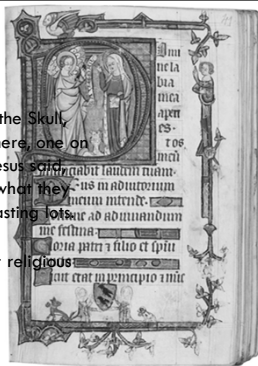 the Skull,
here, one on
esus said,
what they
asting lots.
r religious
mi
ne la
bra
mea
aperi
es-
t os
meū
nciabit laudem tuam.
us in adiutorium
meum intende.
ne ad adiuuandum
me festina.
loria patri ⁊ filio et spiu
icut erat in principio ⁊ nūc